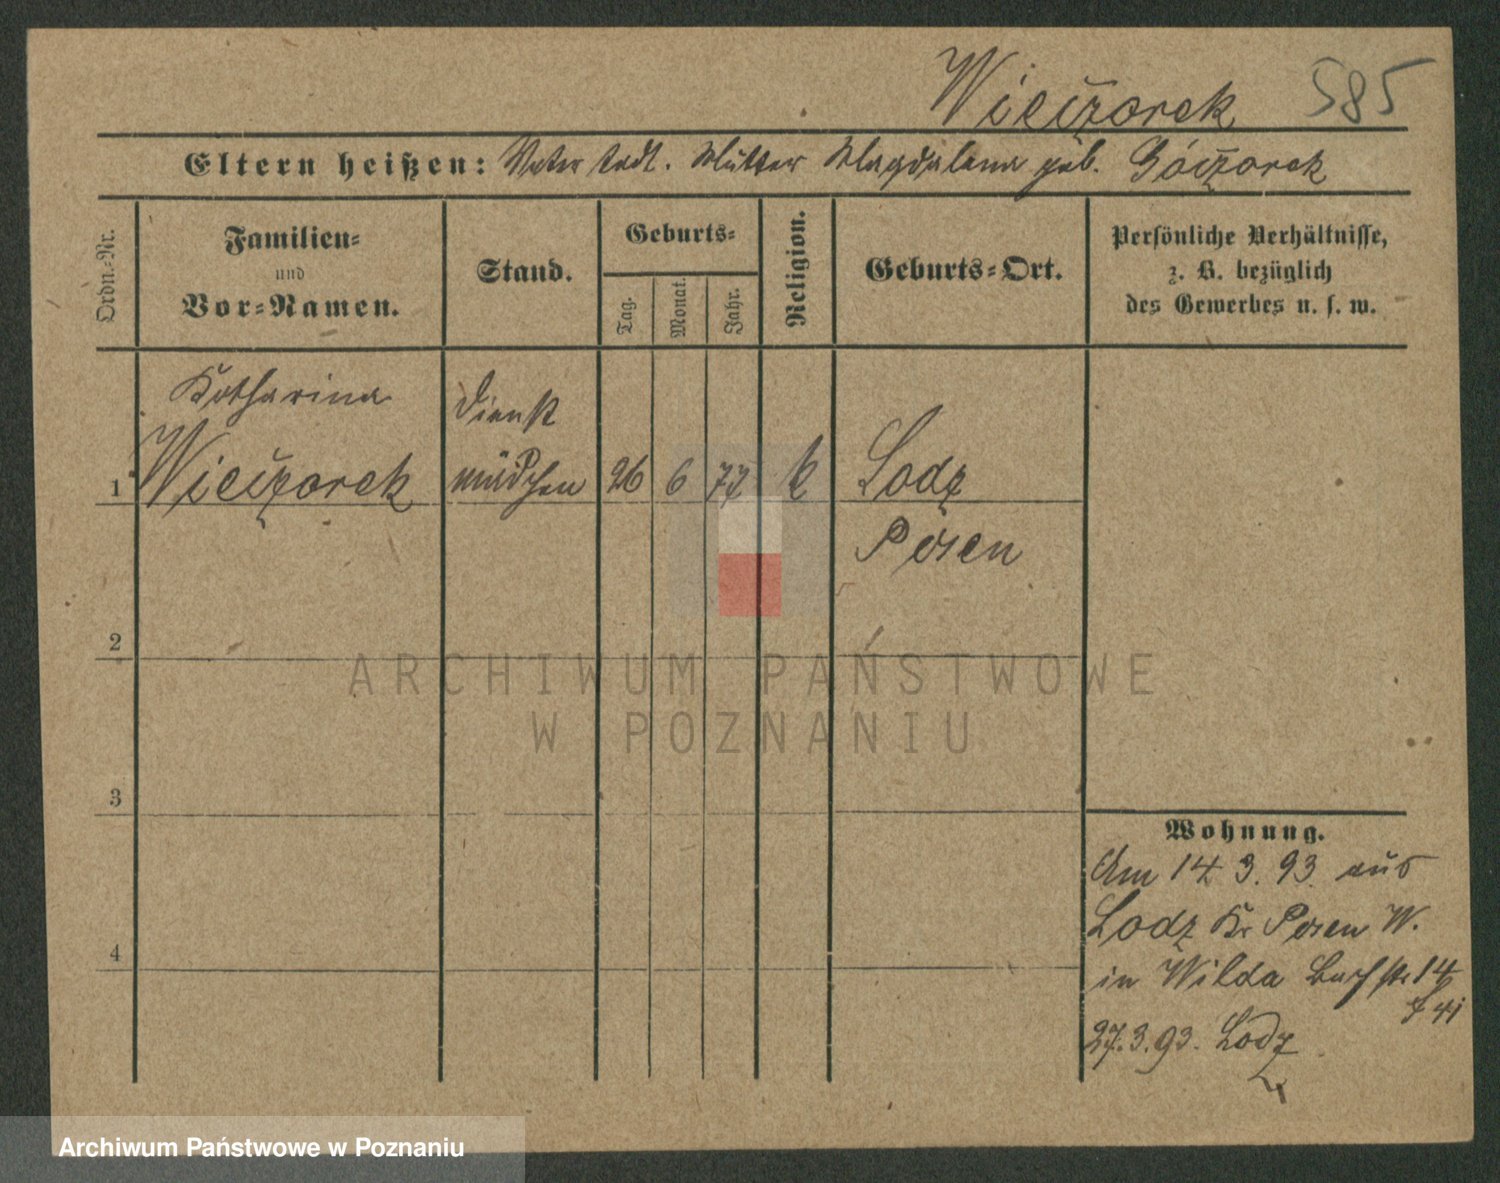 Wieczorek 585
Eltern heißen: Vater todt. Mutter Magdalena geb.
Ordn.-Nr.
Familien-
und
Vor-Namen.
Stand.
Geburts-
Tag.
Monat.
Jahr.
Religion.
Geburts-Ort.
Persönliche Verhältnisse,
z. B. bezüglich
des Gewerbes u. s. w.
Katharina
Dienst
1 Wieczorek mädchen 26 6 77 k Lodz
Posen
2
ARCHIWUM PAŃSTWOWE
W POZNANIU
3
Wohnung.
Am 14 3. 93 aus
Lodz Kr Posen W.
4
in Wilda Bachstr 14
27.3.93. Lodz
Archiwum Państwowe w Poznaniu